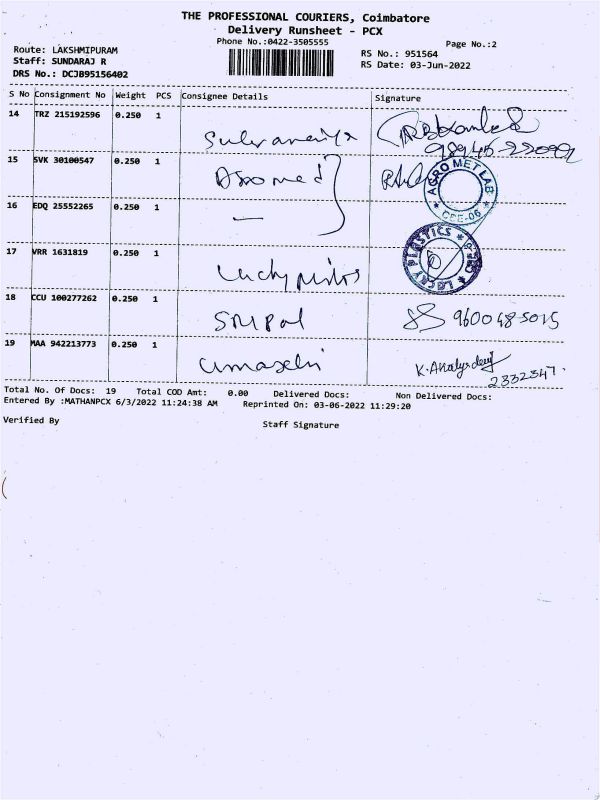 THE PROFESSIONAL COURIERS, Coimbatore
Delivery Runsheet - PCX
Phone No.:0422-3505555
Page No.:2
Route: LAKSHMIPURAM
RS No.: 951564
Staff: SUNDARAJ R
RS Date: 03-Jun-2022
DRS No.: DCJB95156402
S No Consignment No Weight PCS Consignee Details Signature
14 TRZ 215192596 0.250 1
15 SVK 30100547 0.250 1
AGRO MET LAB
CBE-06
16 EDQ 25552265 0.250 1
17 VRR 1631819 0.250 1
LUCKY PLASTICS
18 CCU 100277262 0.250 1 9600485015
19 MAA 942213773 0.250 1
2332347.
Total No. Of Docs: 19 Total COD Amt: 0.00 Delivered Docs: Non Delivered Docs:
Entered By :MATHANPCX 6/3/2022 11:24:38 AM Reprinted On: 03-06-2022 11:29:20
Verified By
Staff Signature